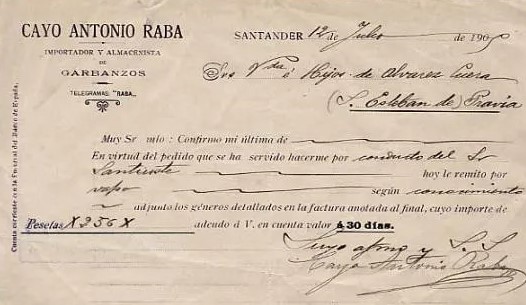 CAYO ANTONIO RABA
IMPORTADOR Y ALMACENISTA
DE
GARBANZOS
TELEGRAMAS: "RABA"
SANTANDER 12 de Julio de 190
Sra Vda é Hijos de Alvarez Cuera
(S. Esteban de) Pravia
Cuenta corriente con la Sucursal del Banco de España.
Muy Sr mio: Confirmo mi última de
En virtud del pedido que se ha servido hacerme por conducto del Sr
hoy le remito por
vapor según conocimiento
adjunto los géneros detallados en la factura anotada al final, cuyo importe de
Pesetas X 256 X adeudo á V. en cuenta valor á 30 días.
Suyo afmo y S. S.
Cayo Antonio Raba